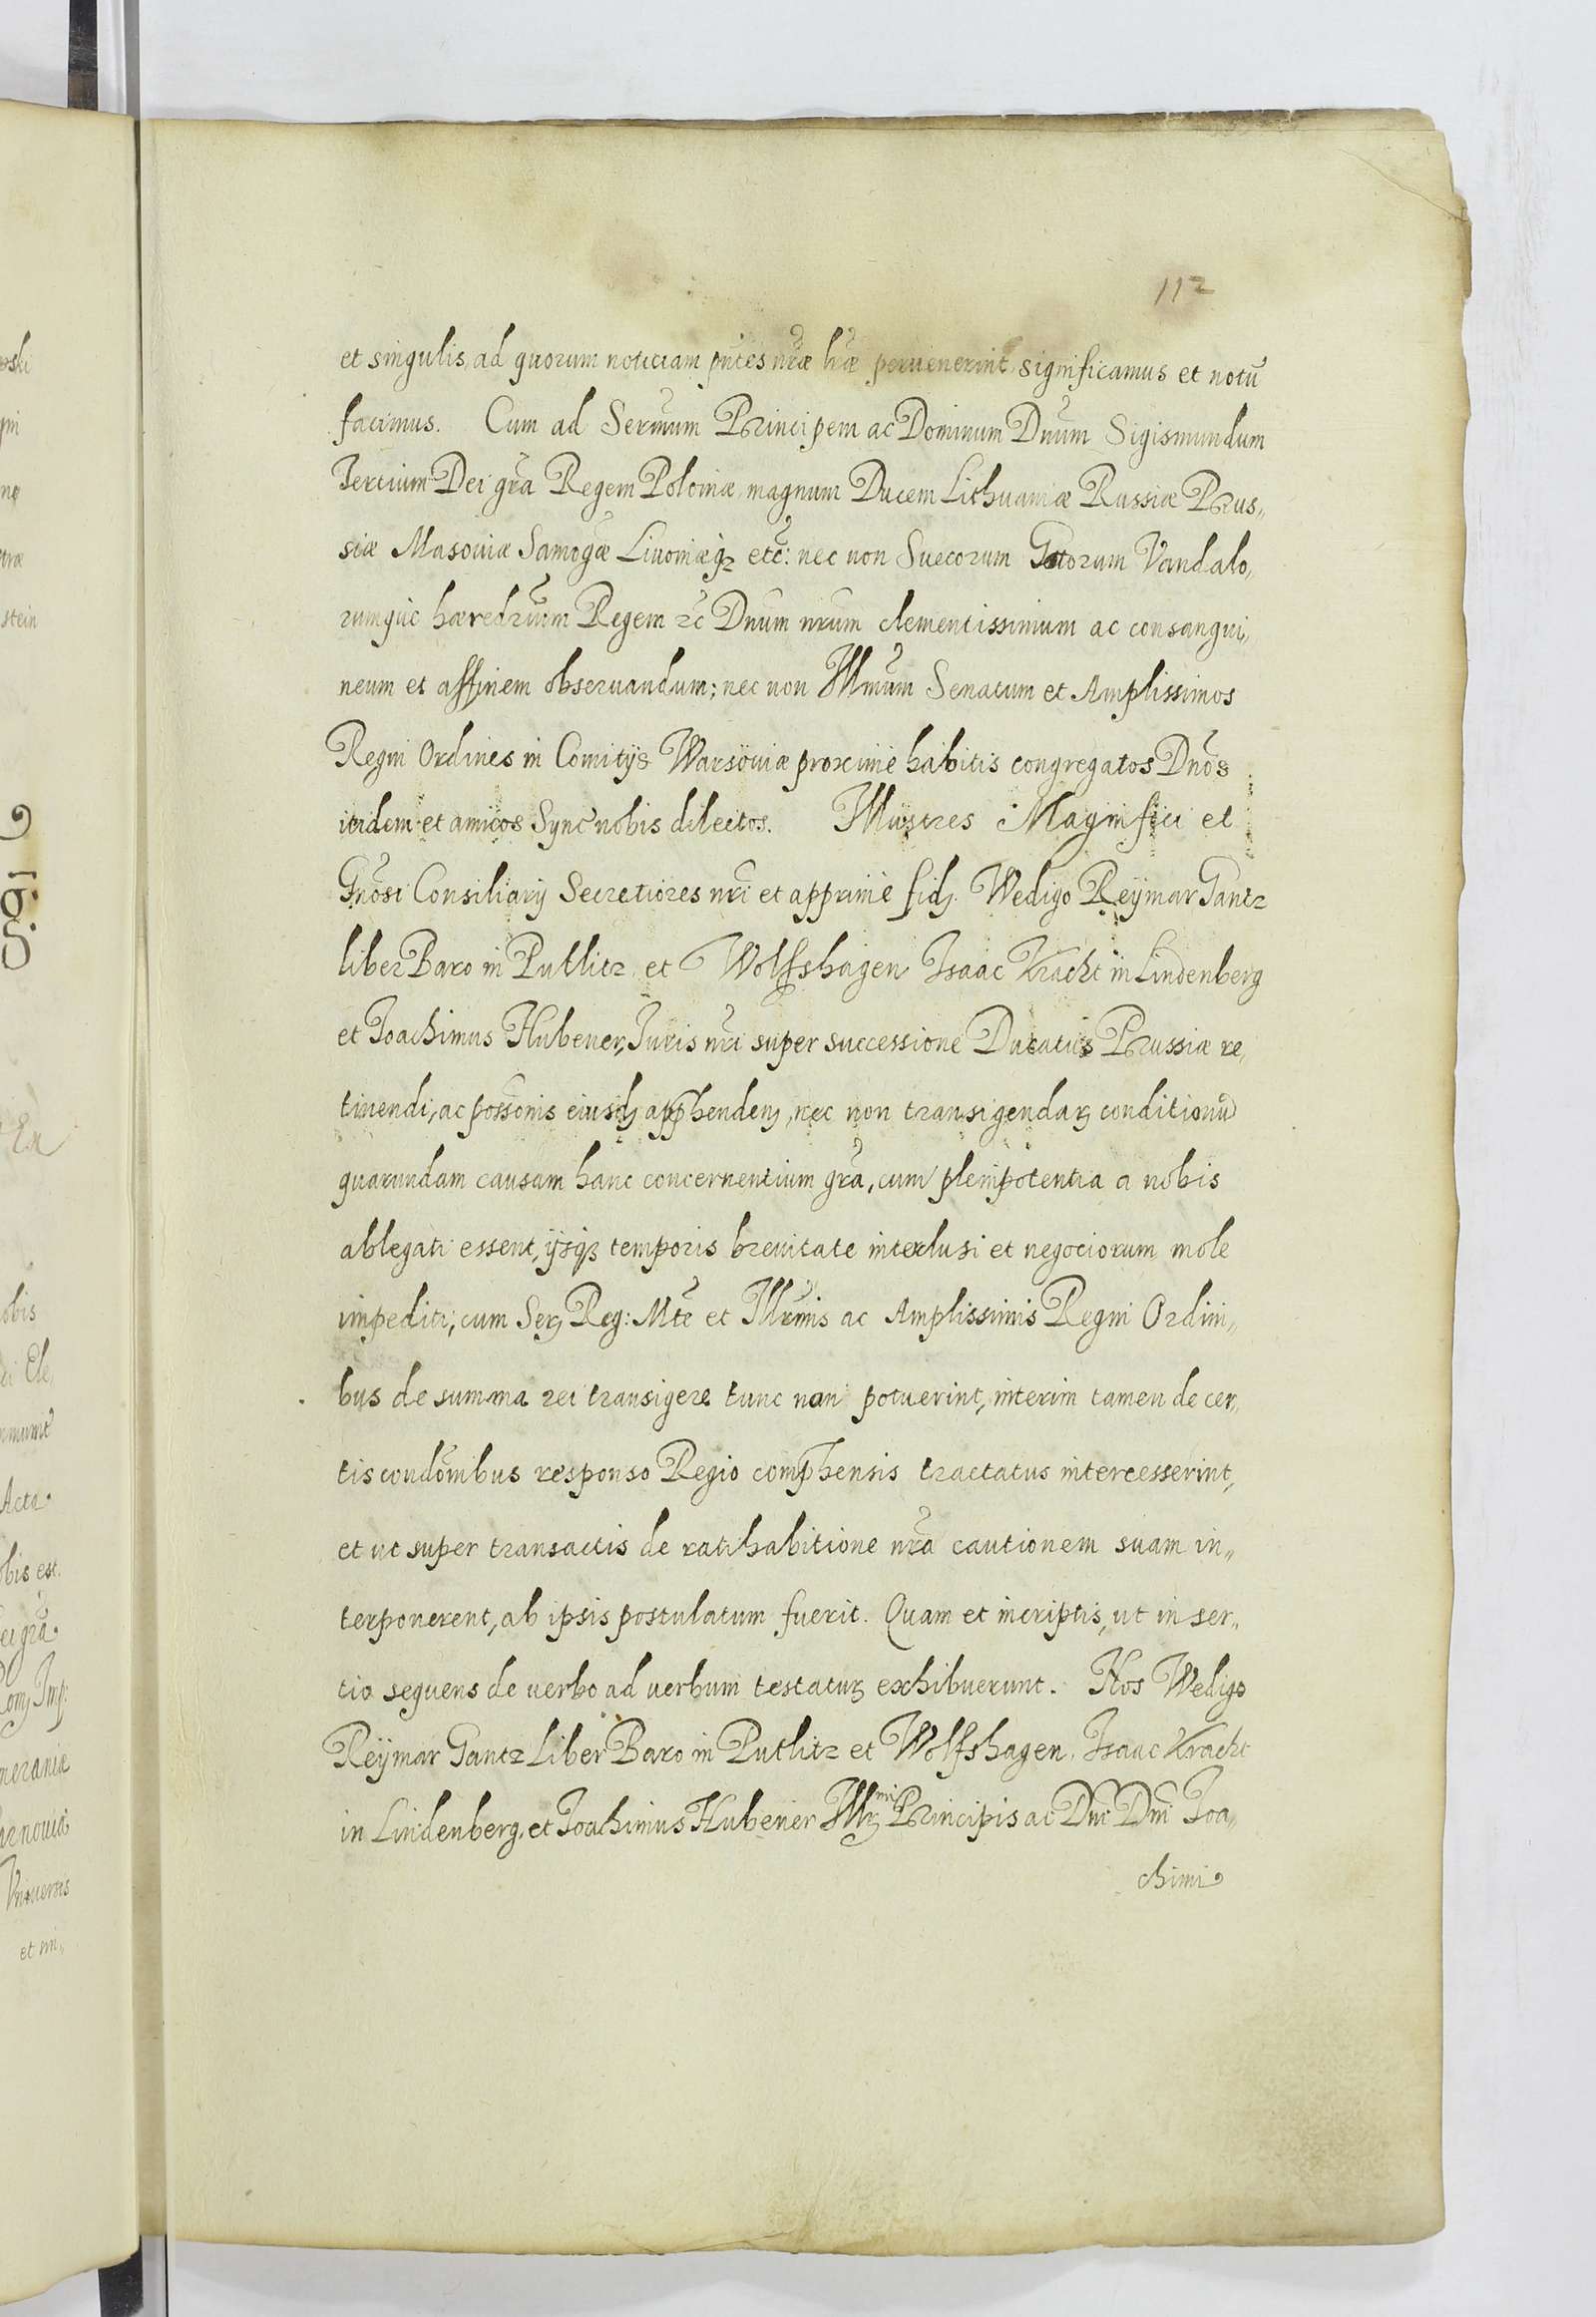 112
et singulis, ad quorum noticiam pntes nrae lrae pervenerint, significamus et notū
facimus. Cum ad Sermum Principem ac Dominum Dnum Sigismundum
Tertium Dei gra Regem Poloniae, magnum Ducem Lithuaniae Russiae Prus„
siae Masoviae Samogae Livoniaeqz etc: nec non Suecorum Gotorum Vandalo„
rumque haeredrium Regem etc Dnum nrum clementissimum ac consangui„
neum et affinem observandum; nec non Illmum Senatum et Amplissimos
Regni Ordines in Comitijs Warsoviae proxime habitis congregatos Dnos
itidem et amicos Sync nobis dilectos. Illustres Magnifici et
Gnosi Consiliarij Secretiores nri et apprime fidz. Wedigo Reÿmar Gantz
liber Baro in Putlitz et Wolfshagen Isaac Kracht in Lindenberg
et Joachimus Hubener, Juris nri super successione Ducatus Prussiae re„
tinendi, ac possonis eiusdz apphendenz, nec non transigendarz conditionū
quarundam causam hanc concernentium gra, cum plenipotentia a nobis
ablegati essent, ijsqz temporis brevitate interclusi et negociorum mole
impediti; cum Serz Reg: Mte et Illrmis ac Amplissimis Regni Ordini„
bus de summa rei transigere tunc non potuerint, interim tamen de cer„
tis condonibus responso Regio comphensis tractatus intercesserint,
et ut super transactis de ratihabitione nra cautionem suam in„
terponerent, ab ipsis postulatum fuerit. Quam et incriptis, ut in ser„
tio sequens de verbo ad verbum testatur exhibuerunt. Nos Wedigo
Reÿmar Gantz Liber Baro in Putlitz et Wolfshagen, Isaac Kracht
in Lindenberg, et Joachimus Hubener Illrmi Principis ac Dni Dni Joa„
chimi